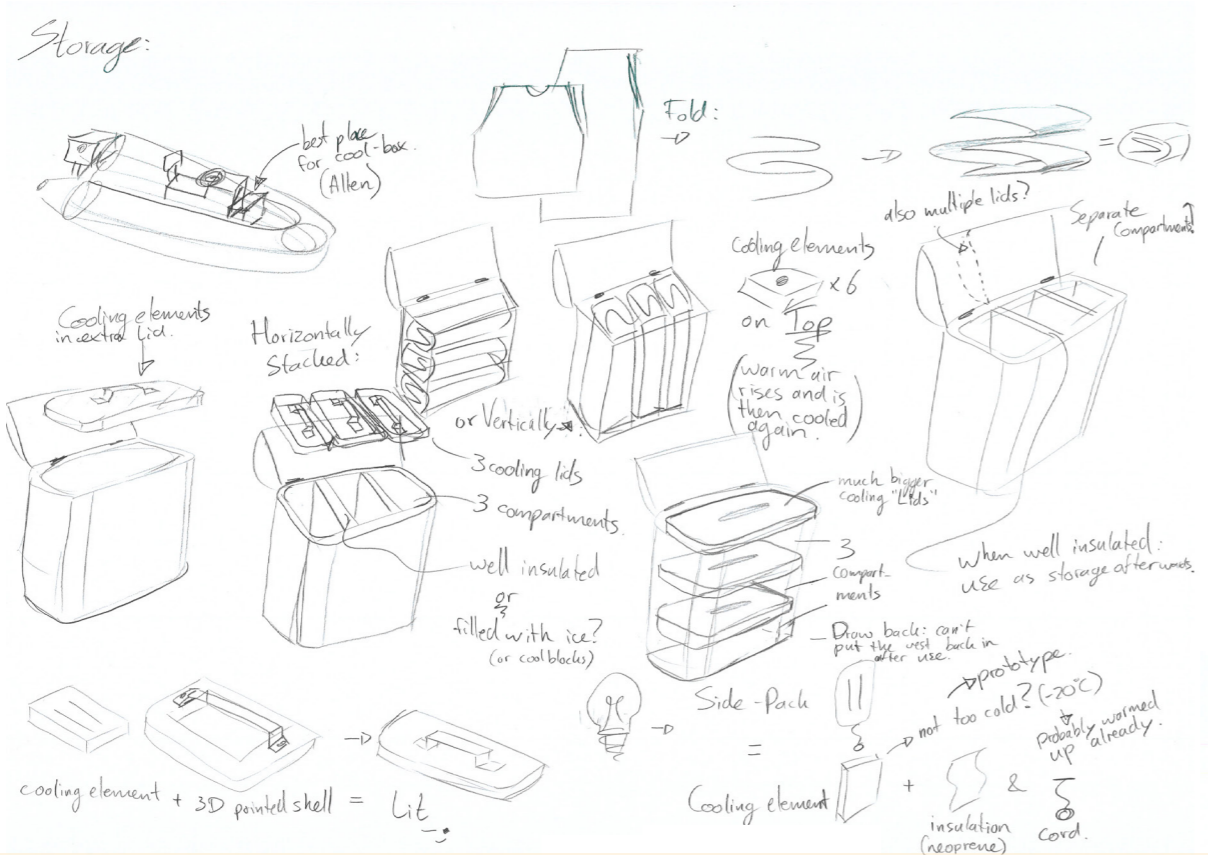 Storage:
best place
for cool-box.
(Allen)
Fold:
=
also multiple lids?
Separate
Compartments
Cooling elements
x6
on Top
(warm air
rises and is
then cooled
again.)
Cooling elements
in extra Lid.
Horizontally
Stacked:
or Vertically:
3 cooling lids
3 compartments.
well insulated
or
filled with ice?
(or coolblocks)
much bigger
cooling "Lids"
3
compart-
ments
Draw back: can't
put the vest back in
after use.
When well insulated:
use as storage afterwards.
cooling element + 3D printed shell = Lit
Side-Pack
=
Cooling element + insulation
(neoprene)
& cord.
not too cold? (-20°C)
prototype.
Probably warmed
up already.